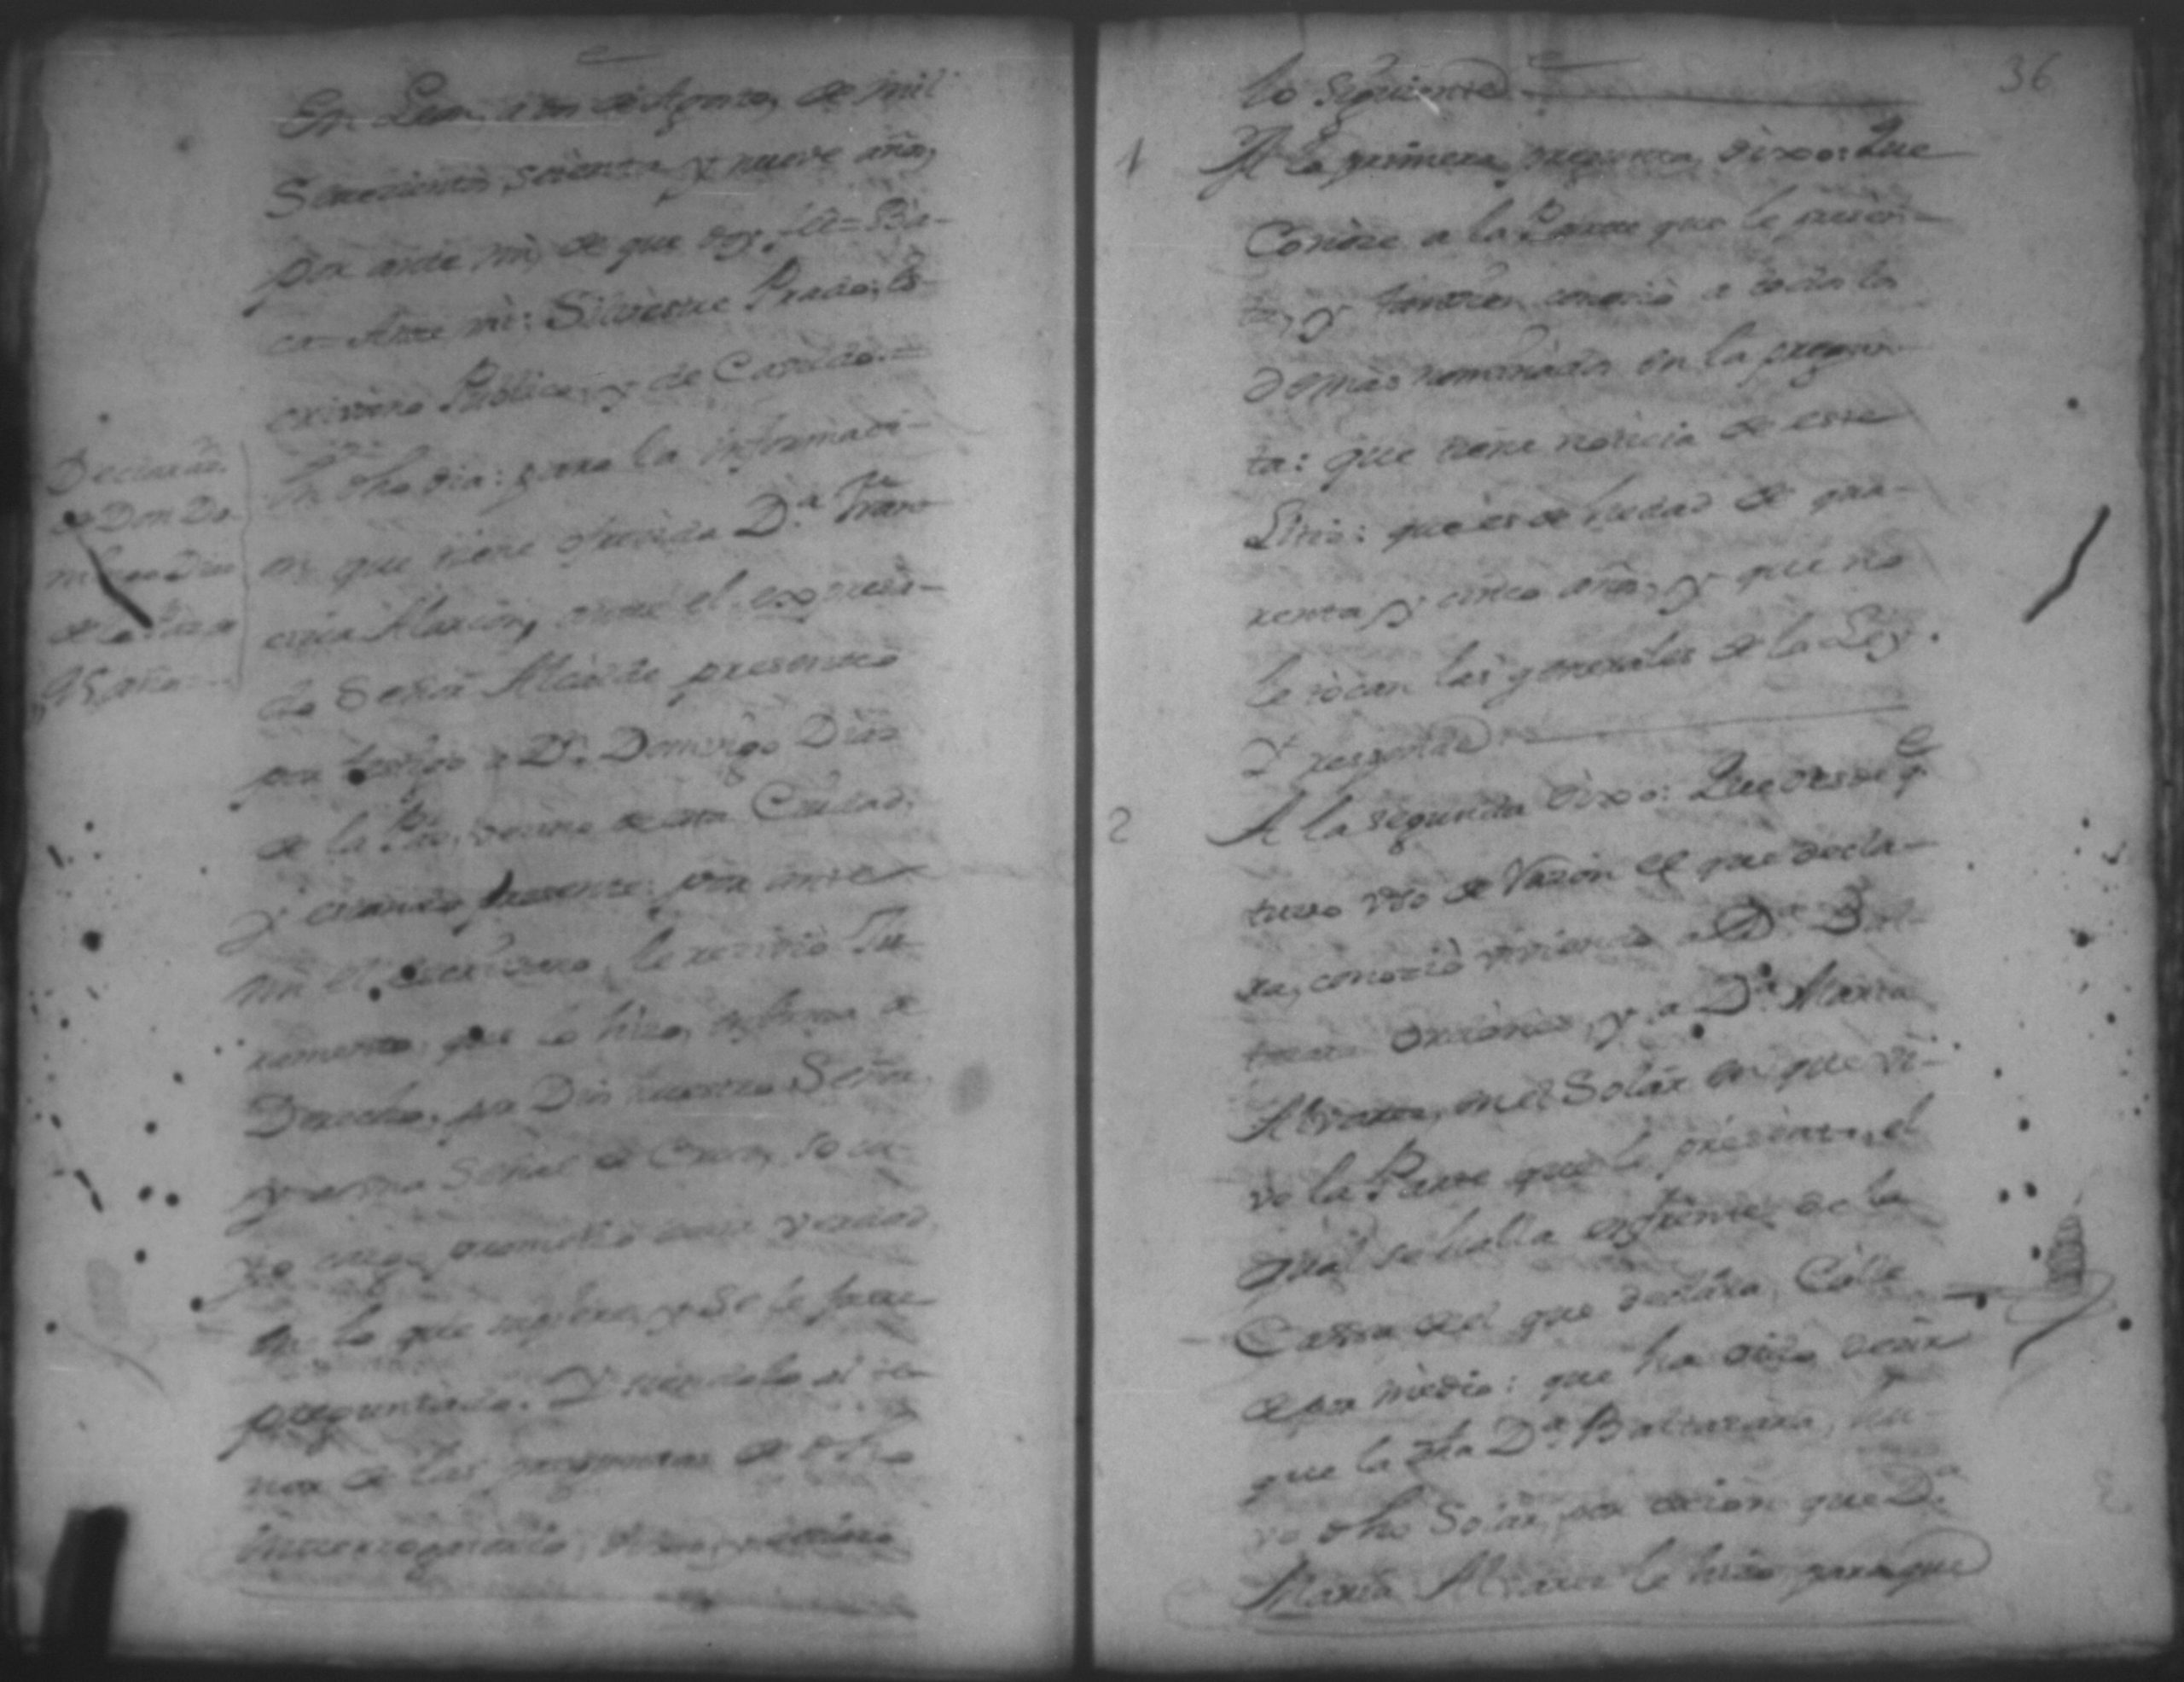 En Leon, a de Agosto, de mil
Setecientos, setenta y nueve años,
por ante mi, de que doy fee = Ba-
ca = Ante mi: Silvestre Prado, Es-
crivano Publico, y de Cavildo =
En dho dia: para la informaci-
on, que tiene ofrecida D.ª Fran-
cisca Alarcon, ante el expresa-
do Señor Alcalde presentó
por testigo a D.n Domingo Dias
de la vecino de esta Ciudad,
y estando presente por ante
mi el Escrivano, le recivió Ju-
ramento, que lo hizo, en forma de
Derecho, por Dios Nuestro Señor,
y a una Señal de Cruz, so cu-
yo cargo, prometió decir verdad,
en lo que supiere, y se le fuere
preguntado. Y siendolo al te-
nor de las preguntas de dho
interrogatorio, dixo, y declaro
Declaraᵒⁿ
de Don Do-
mingo Dias
de la
45 años
36
lo siguiente
1 A la primera pregunta, dixo: Que
Conoce a la Parte que le presen-
ta, y tambien conoció a todos los
demas nominados en la pregun-
ta: que tiene noticia de este
Litis: que es de hedad de qua-
renta y cinco años, y que no
le tocan las generales de la Ley.
Y responde
2 A la segunda dixo: Que desde q.e
tuvo vso de Razon el que decla-
ra, conoció viviendo a D.ª Bal-
tasara Ordoñes, y a D.ª Maria
Alvares, en el Solar en que vi-
ve la Parte que le presenta, el
qual se halla enfrente de la
Cassa del que declara, Calle
de por medio: que ha oido decir
que la dha D.ª Baltasara, hu-
vo dho Solar, por cecion que D.ª
Maria Alvares le hizo, para que